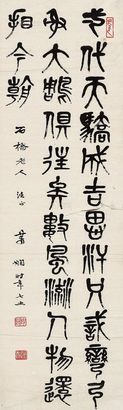 弌代天驕成吉思汗只識彎弓
射大鵰俱往矣數風流人物還
看今朝
石橋老人法正
蕭嫻時年七五